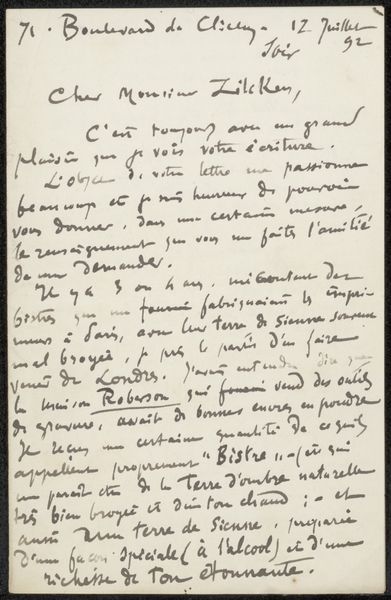 71. Boulevard de Clichy. 12 Juillet
Soir 92
Cher Monsieur Zilcken,
C'est toujours avec un grand
plaisir que je vois votre écriture.
L'objet de votre lettre me passionne
beaucoup et je suis heureux de pouvoir
vous donner, dans une certaine mesure,
le renseignement que vous me faites l'amitié
de me demander.
Il y a 3 ou 4 ans, mécontent des
bistres que me fabriquaient les impri-
meurs à Paris, avec leur terre de Sienne souvent
mal broyée, je pris le parti d'en faire
venir de Londres. J'avais entendu dire que
la maison Roberson qui vend des outils
de gravure, avait de bonnes encres en poudre
Je reçus une certaine quantité de ce qu'ils
appellent proprement "Bistre" - (et qui
me parait être de la Terre d'ombre naturelle
très bien broyée et d'un ton chaud ; - et
aussi d'une terre de Sienne, préparée
d'une façon spéciale (à l'alcool) et d'une
richesse de ton étonnante.